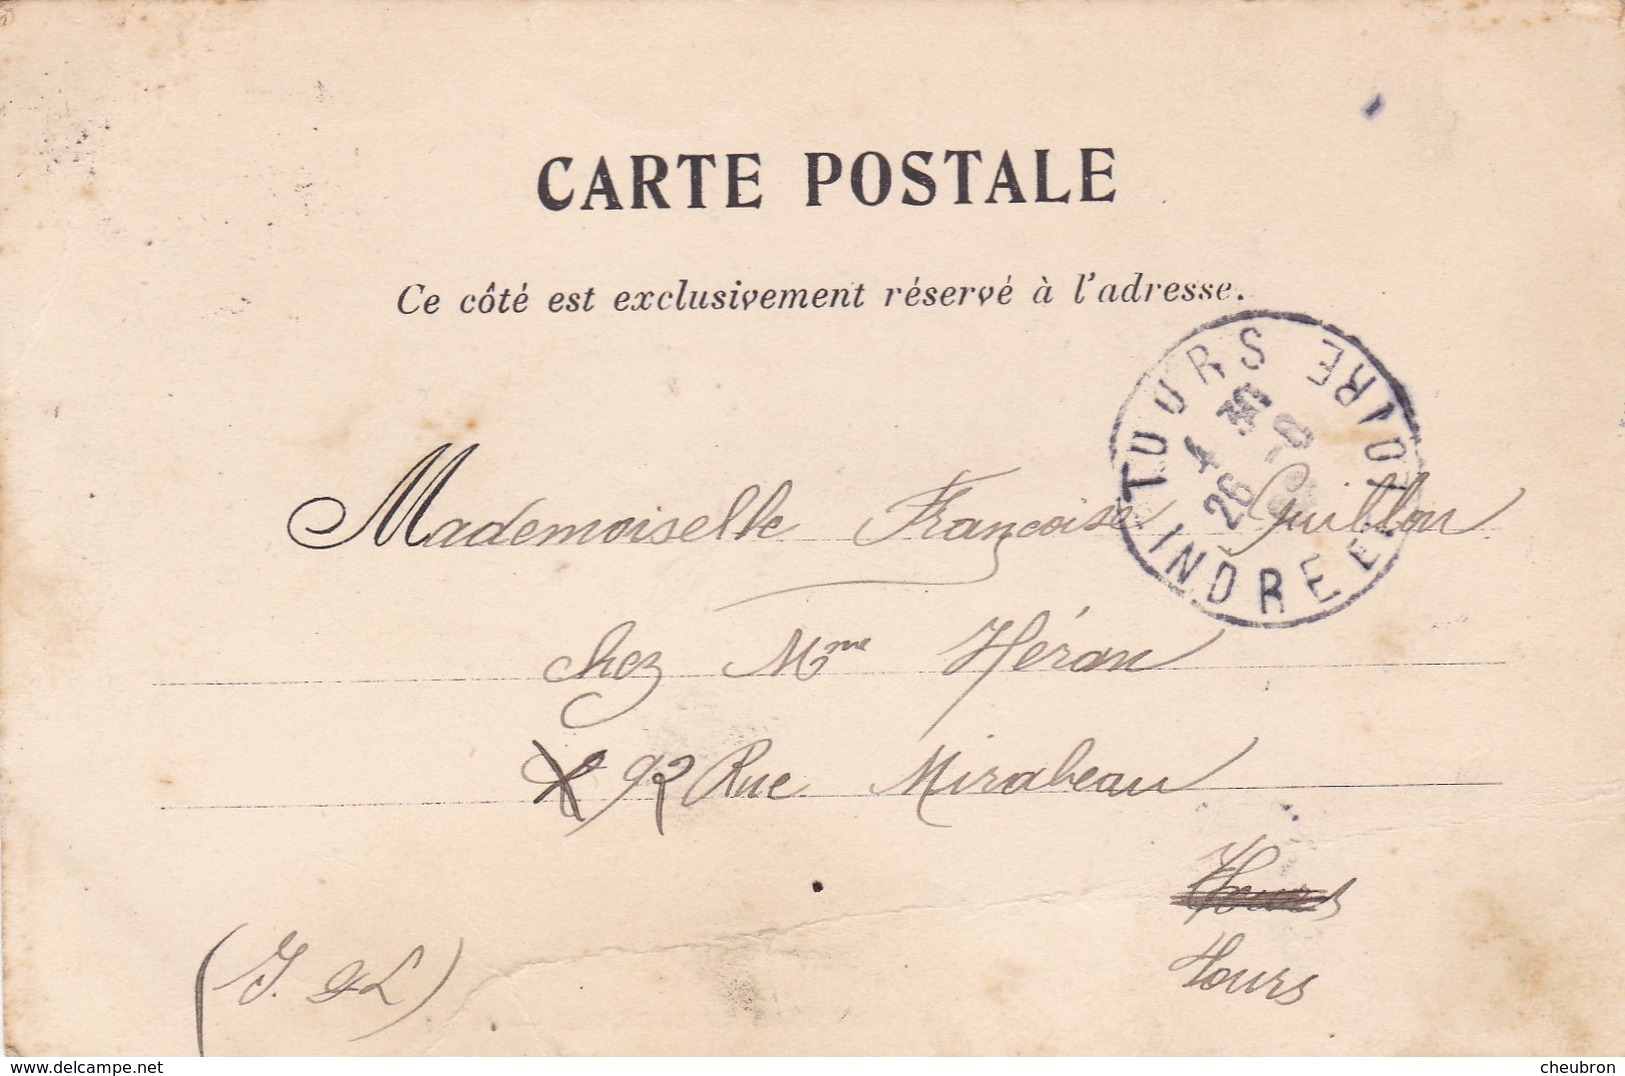 CARTE POSTALE
Ce côté est exclusivement réservé à l'adresse.
TOURS
INDRE ET LOIRE
4 30
26 -8
Mademoiselle Françoise Guillon
chez Mme Héran
92 Rue Mirabeau
Tours
Tours
(I. & L)
delcampe.net
cheubron